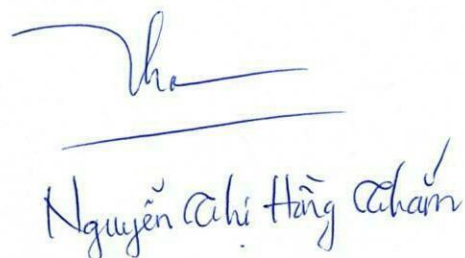 Nguyễn Thị Hồng Thắm